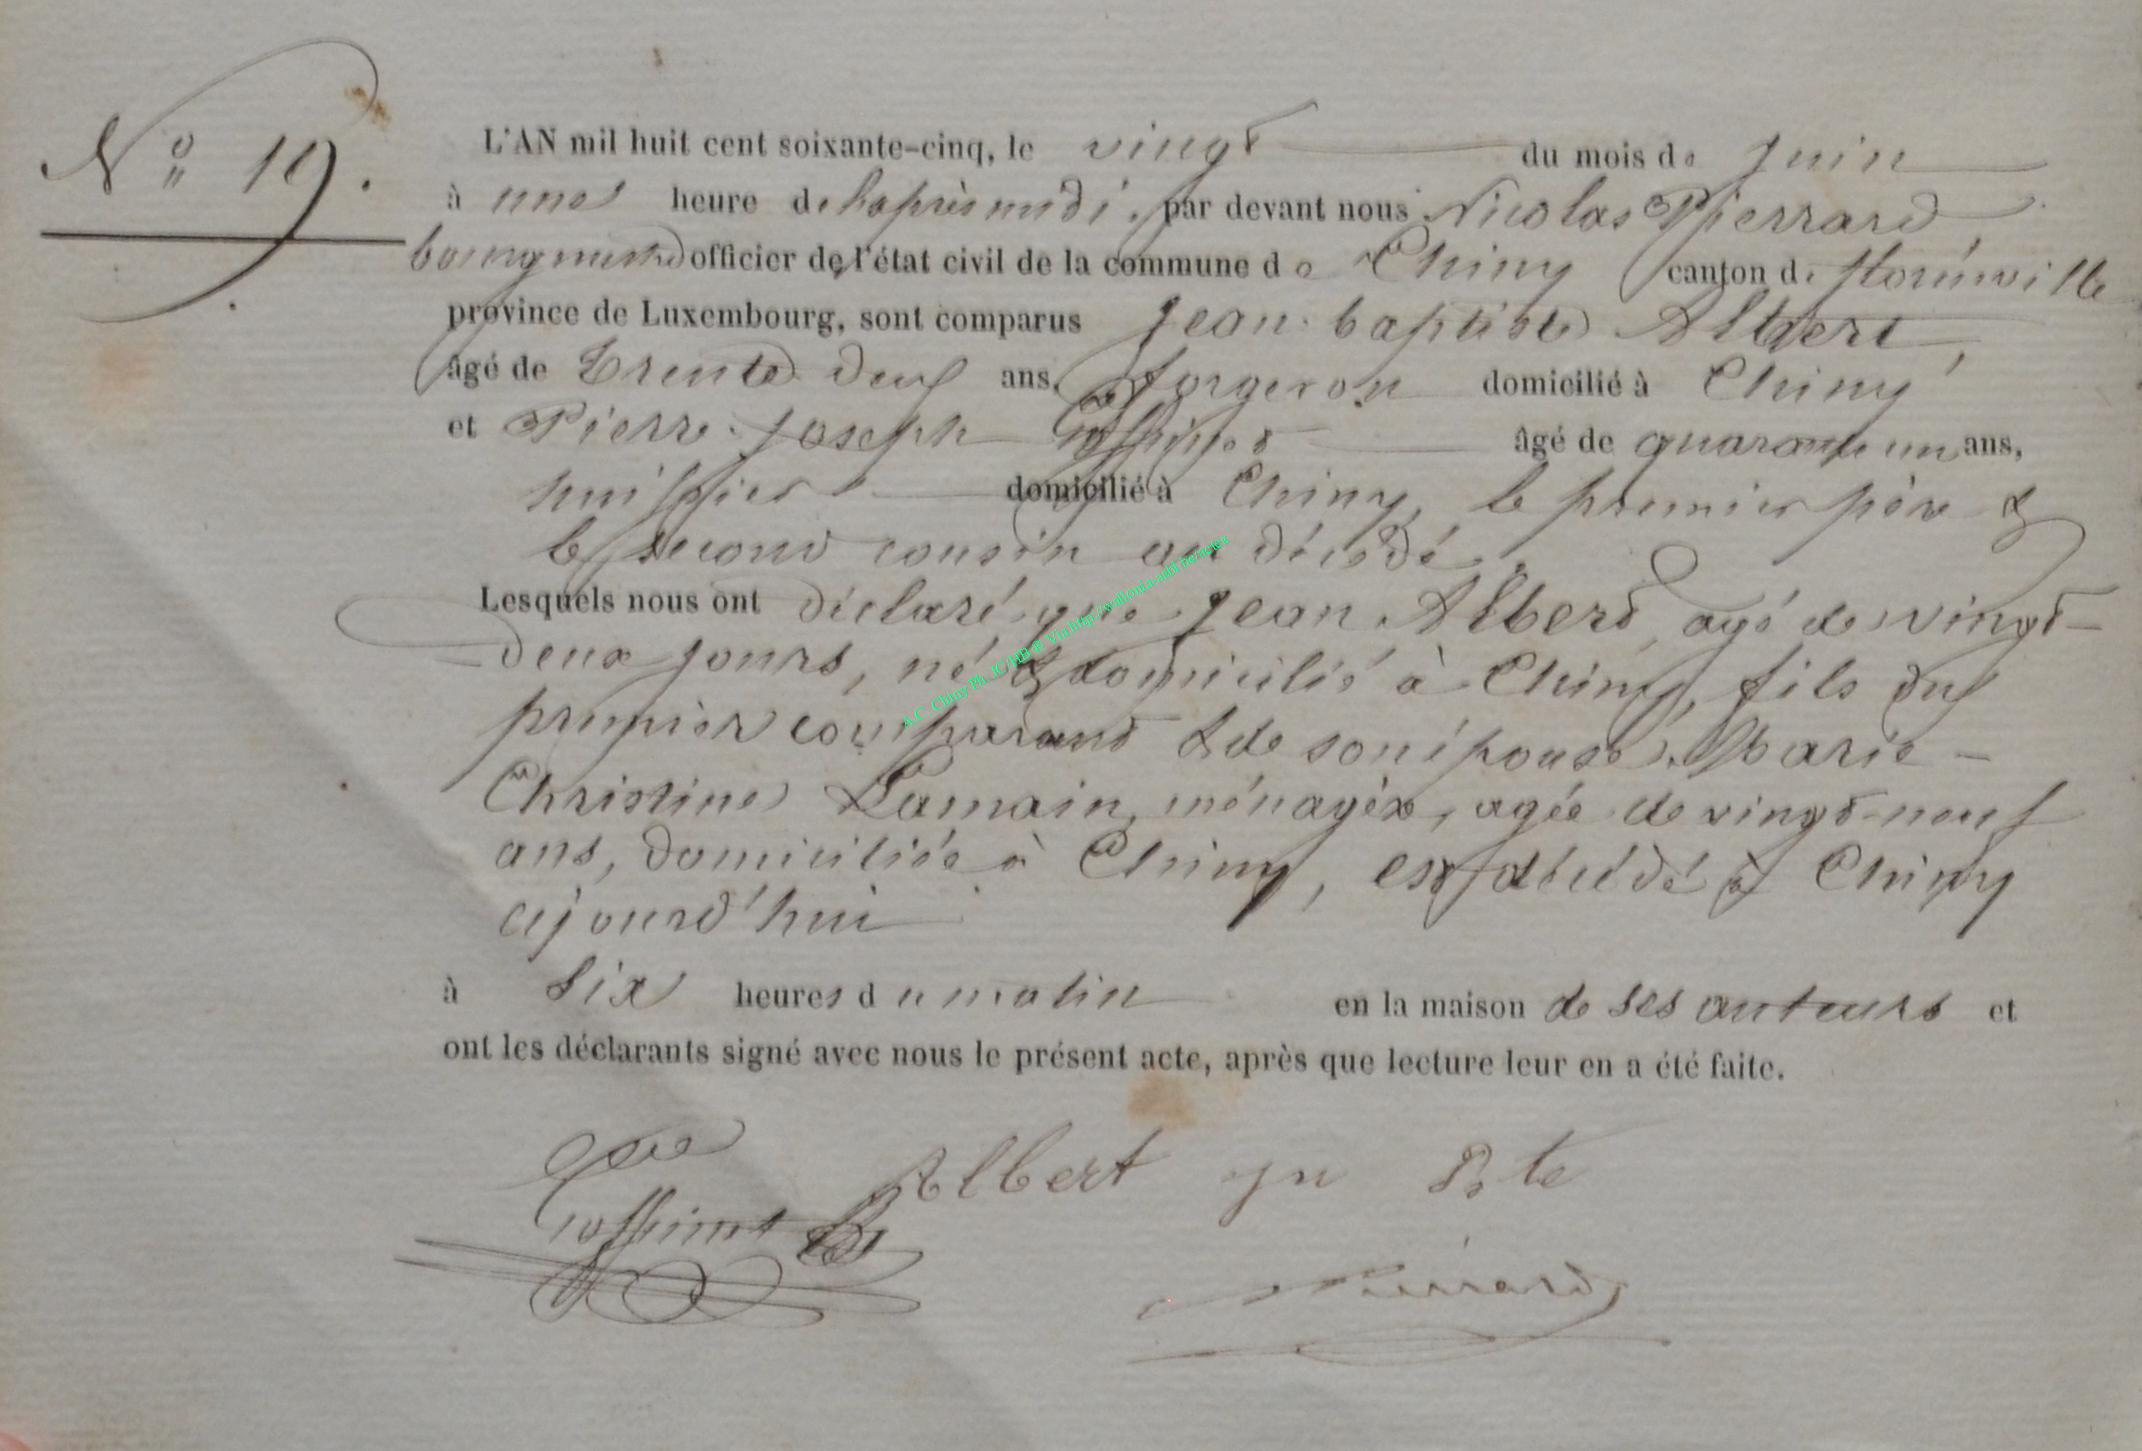 N° 19.
L'AN mil huit cent soixante-cinq, le vingt du mois de Juin
à une heure de l'après midi, par devant nous Nicolas Pierrard,
bourgmestre officier de l'état civil de la commune de Chiny canton de florenville
province de Luxembourg, sont comparus Jean baptiste Albert,
âgé de Trente deux ans, forgeron domicilié à Chiny
et Pierre Joseph Goffinet âgé de quarante un ans,
huissier domicilié à Chiny, le premier père &
le second cousin au décédé.
Lesquels nous ont déclaré que Jean Albert, agé de vingt-
deux jours, né & domicilié à Chiny, fils du
premier comparant & de son épouse Marie-
Christine Lamain, ménagère, agée de vingt-neuf
ans, domiciliée à Chiny, est décédé à Chiny
ajourd'hui
à Six heures du matin en la maison de ses auteurs et
ont les déclarants signé avec nous le présent acte, après que lecture leur en a été faite.
Albert jn Bte
Goffinet
Pierrard
A.C. Chiny Ph. JC/HB © Via http://wallonia-asbl.be/actes